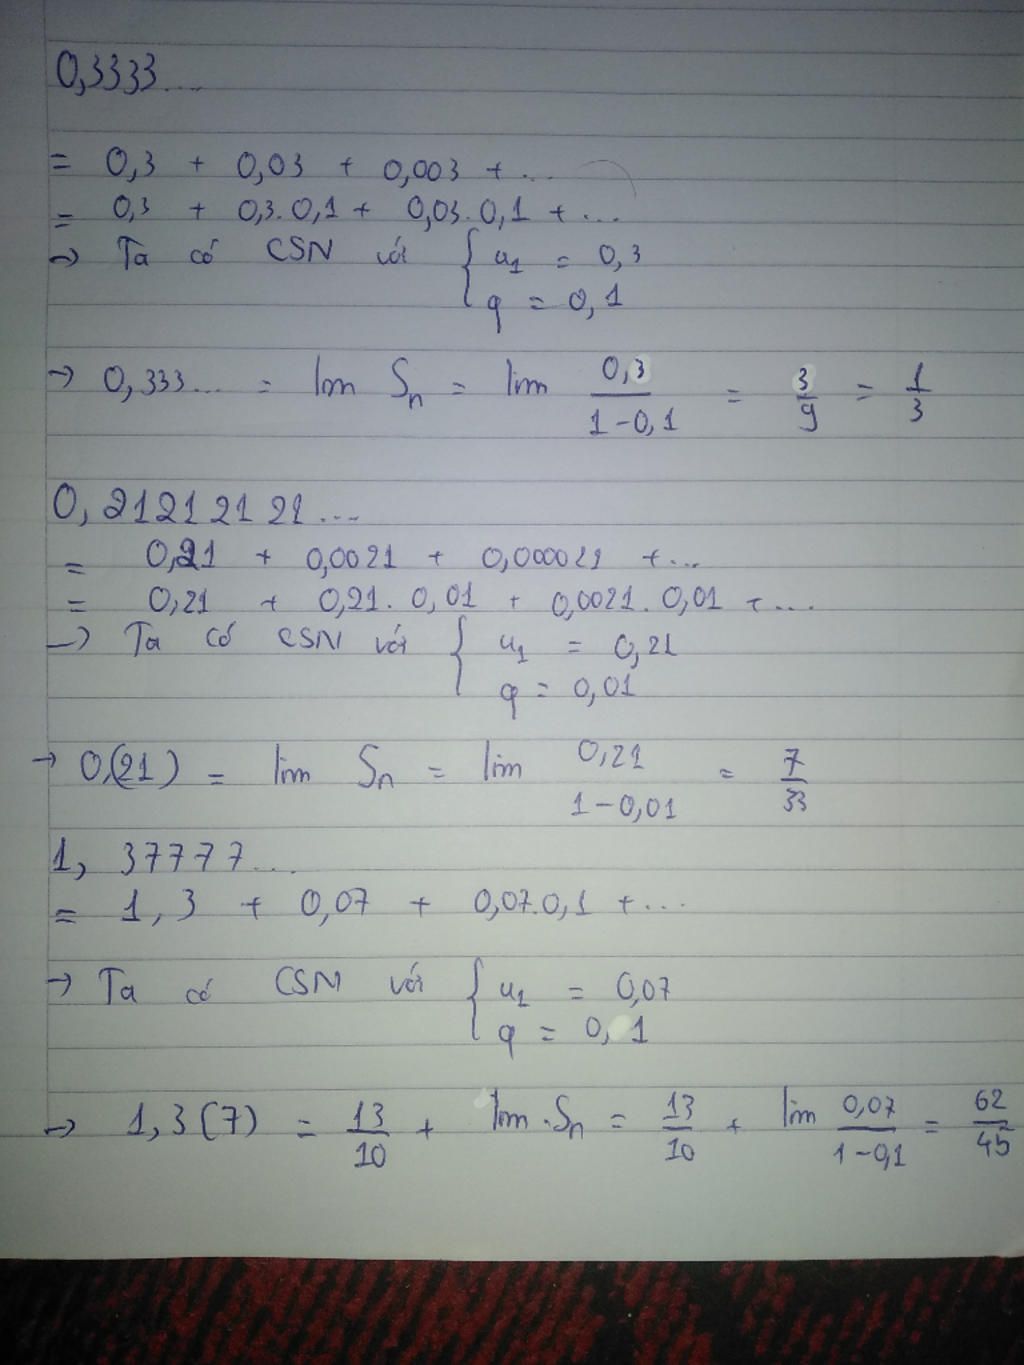 0,3333...
= 0,3 + 0,03 + 0,003 + ...
= 0,3 + 0,3.0,1 + 0,03.0,1 + ...
→ Ta có CSN với { u1 = 0,3
q = 0,1
→ 0,333... = lim Sn = lim 0,3/(1-0,1) = 3/9 = 1/3
0,21212121...
= 0,21 + 0,0021 + 0,000021 + ...
= 0,21 + 0,21.0,01 + 0,0021.0,01 + ...
→ Ta có CSN với { u1 = 0,21
q = 0,01
→ 0,(21) = lim Sn = lim 0,21/(1-0,01) = 7/33
1,37777...
= 1,3 + 0,07 + 0,07.0,1 + ...
→ Ta có CSN với { u1 = 0,07
q = 0,1
→ 1,3(7) = 13/10 + lim.Sn = 13/10 + lim 0,07/(1-0,1) = 62/45